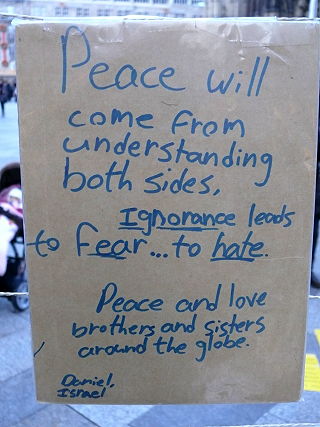 Peace will
come from
understanding
both sides,
Ignorance leads
to fear...to hate.
Peace and love
brothers and sisters
around the globe.
Daniel,
Israel